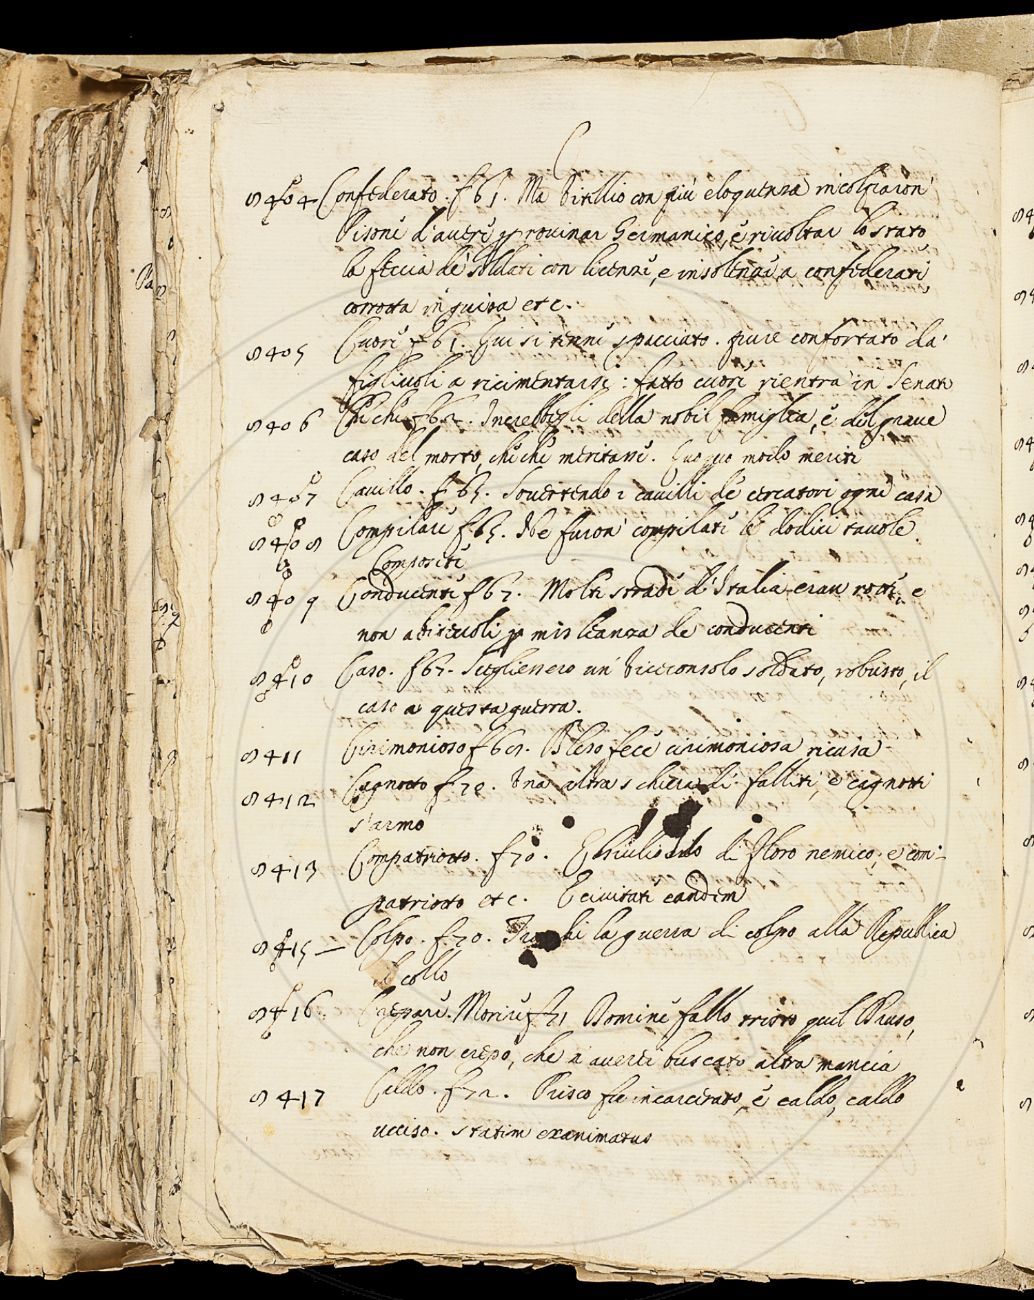 C
8404 Confederato. f 61. Ma Vitellio con più eloquenza incolparon
Pisone d'avere p rovinar Germanico, e rivoltar lo stato
la feccia de soldati con licenze, e insolenze a confederati
corrotta in guisa etc.
8405 Cuore f 61. Qui si tenne spacciato. pure confortato da'
figliuoli a ricimentarsi: fatto cuore rientra in Senato
8406 Che che f 62. Increbbegli della nobil famiglia, e del grave
caso del morto, che che meritasse. Quoquo modo meriti
8407 Cavillo. f 65. Sovertendo i cavilli de cercatori ogni casa
8408 Compilare f 65. Ne furon compilate le dodici tavole.
Compositae
8409 Conducenti f 67. Molte strade d'Italia eran rotte, e
non abitevoli p misleanza de conducenti
8410 Caso. f 67. Scegliessero un Viceconsolo soldato, robusto, il
caso a questa guerra.
8411 Cirimonioso f 69. Bleso fece cirimoniosa ricusa
8412 Cagnotto f 70. Una altra schiera di falliti, e cagnotti
s'armò
8413 Compatriotto. f 70. E Giulio Indo di Floro nemico, e com-
patriotto etc. E civitate eandem
8415 — Colpo. f. 70. la guerra di colpo alla Republica
il collo
8416 Crepare. Morire f 71 Domine fallo tristo quel Druso,
che non crepò, che n'averei buscato altra mancia
8417 Caldo. f 72. Prisco fu incarcerato, e caldo, caldo
ucciso. statim exanimatus